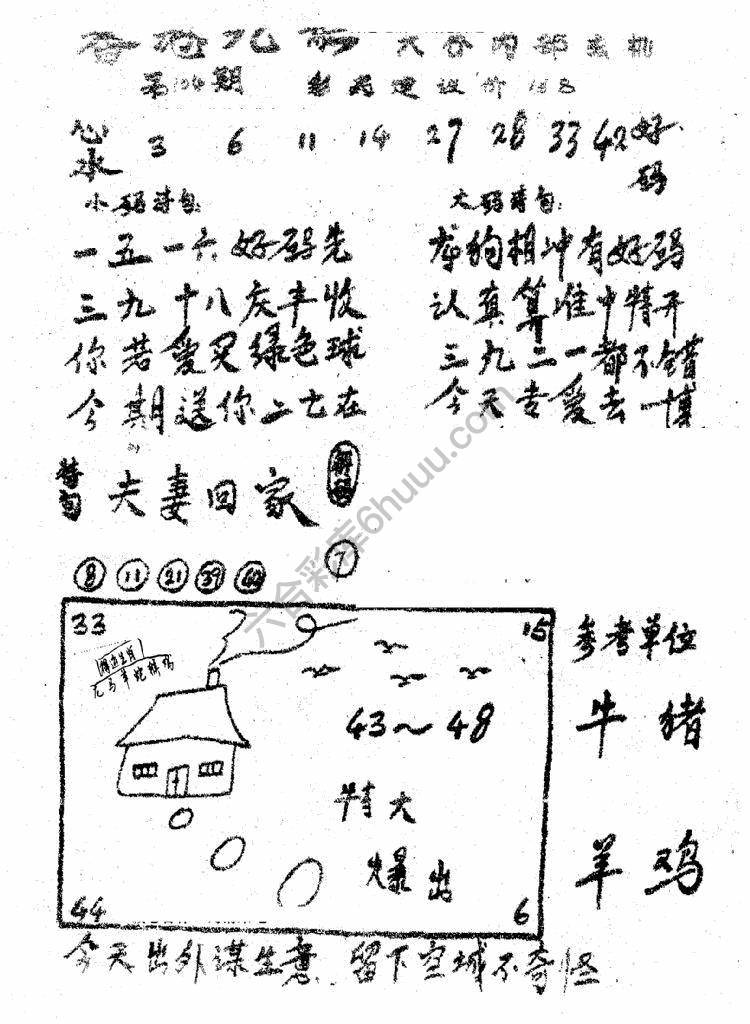 香港九龙 大会内部玄机
第104期 彩民建议价168
心水 3 6 11 14 27 28 33 42 好码
小码诗句:
一五一六好码先
三九十八庆丰收
你若爱买绿色球
今期送你二七在
大码诗句:
龙狗相冲有好码
认真算准中特开
三九二一都不错
今天专爱去一博
特句 夫妻回家
8 11 21 39 7
33 15
43~48
特大
爆出
44 6
参考单位
牛 猪
羊 鸡
今天出外谋生意 留下空城不奇怪
六合彩库6huuu.com